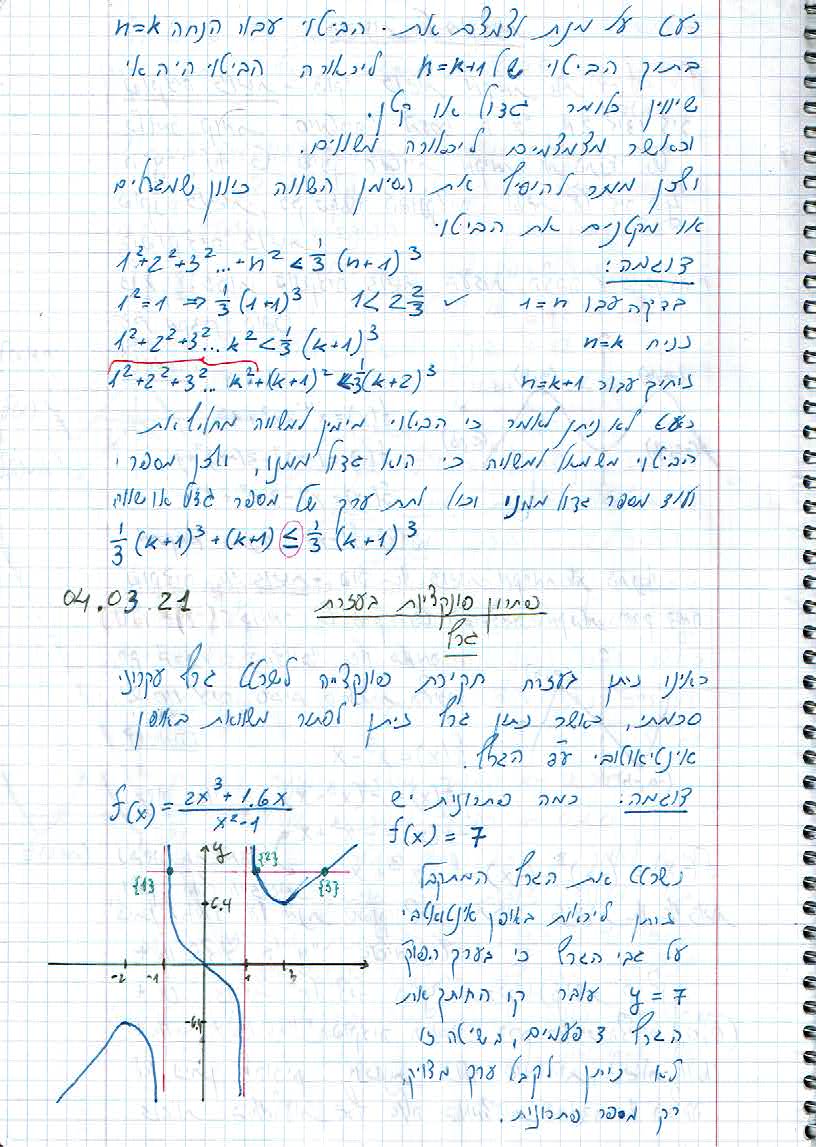 כעט על מנת לצמצם את הביטוי עבור הנחה n=k
בתוך הביטוי של n=k+1 ליכאורה הביטוי היה אי
שיוויון כלומר גדול או קטן.
וכאשר מצמצמים ליכאורה משווים.
ולכן מותר להוסיף את הסימן השווה כיוון שמגדילים
או מקטנים את הביטוי
דוגמה: 1²+2²+3²...+n² < 1/3 (n+1)³
בדיקה עבור n=1 1²=1 ⇒ 1/3 (1+1)³ 1<2 2/3 ✓
נניח n=k 1²+2²+3²...k² < 1/3 (k+1)³
נוכיח עבור n=k+1 1²+2²+3²...k²+(k+1)² < 1/3 (k+2)³
כעט לא ניתן לאמר כי הביטוי מימין למשווה מחליף את
הביטוי משמאל למשווה כי הוא גדול ממנו, ולכן מספרי
ועוד מספר גדול ממני יכול לתת ערך של מספר גדול או שווה
1/3 (k+1)³+(k+1) ≤ 1/3 (k+1)³
פתרון פונקציות בעזרת 04.03.21
גרף
ראינו ניתן בעזרת חקירת פונקציה לשרטט גרף עקרוני
סכמתי, כאשר נתון גרף ניתן לפתור משוואת באופן
אינטיאוטובי עפ הגרף.
דוגמה: כמה פתרונות יש f(x) = (2x³+1.6x)/(x²-1)
f(x) = 7
נשרטט את הגרף המתקבל
וניתן ליראות באופן אינטואטבי
על גבי הגרף כי בערך הפונק
y = 7 עובר קו החותך את
הגרף 3 פעמים, בשיטה זו
לא ניתן לקבל ערך מדויק,
רק מספר פתרונות.
y
{1} {2} {3}
6.4
-2 -1 1 2
-6.4